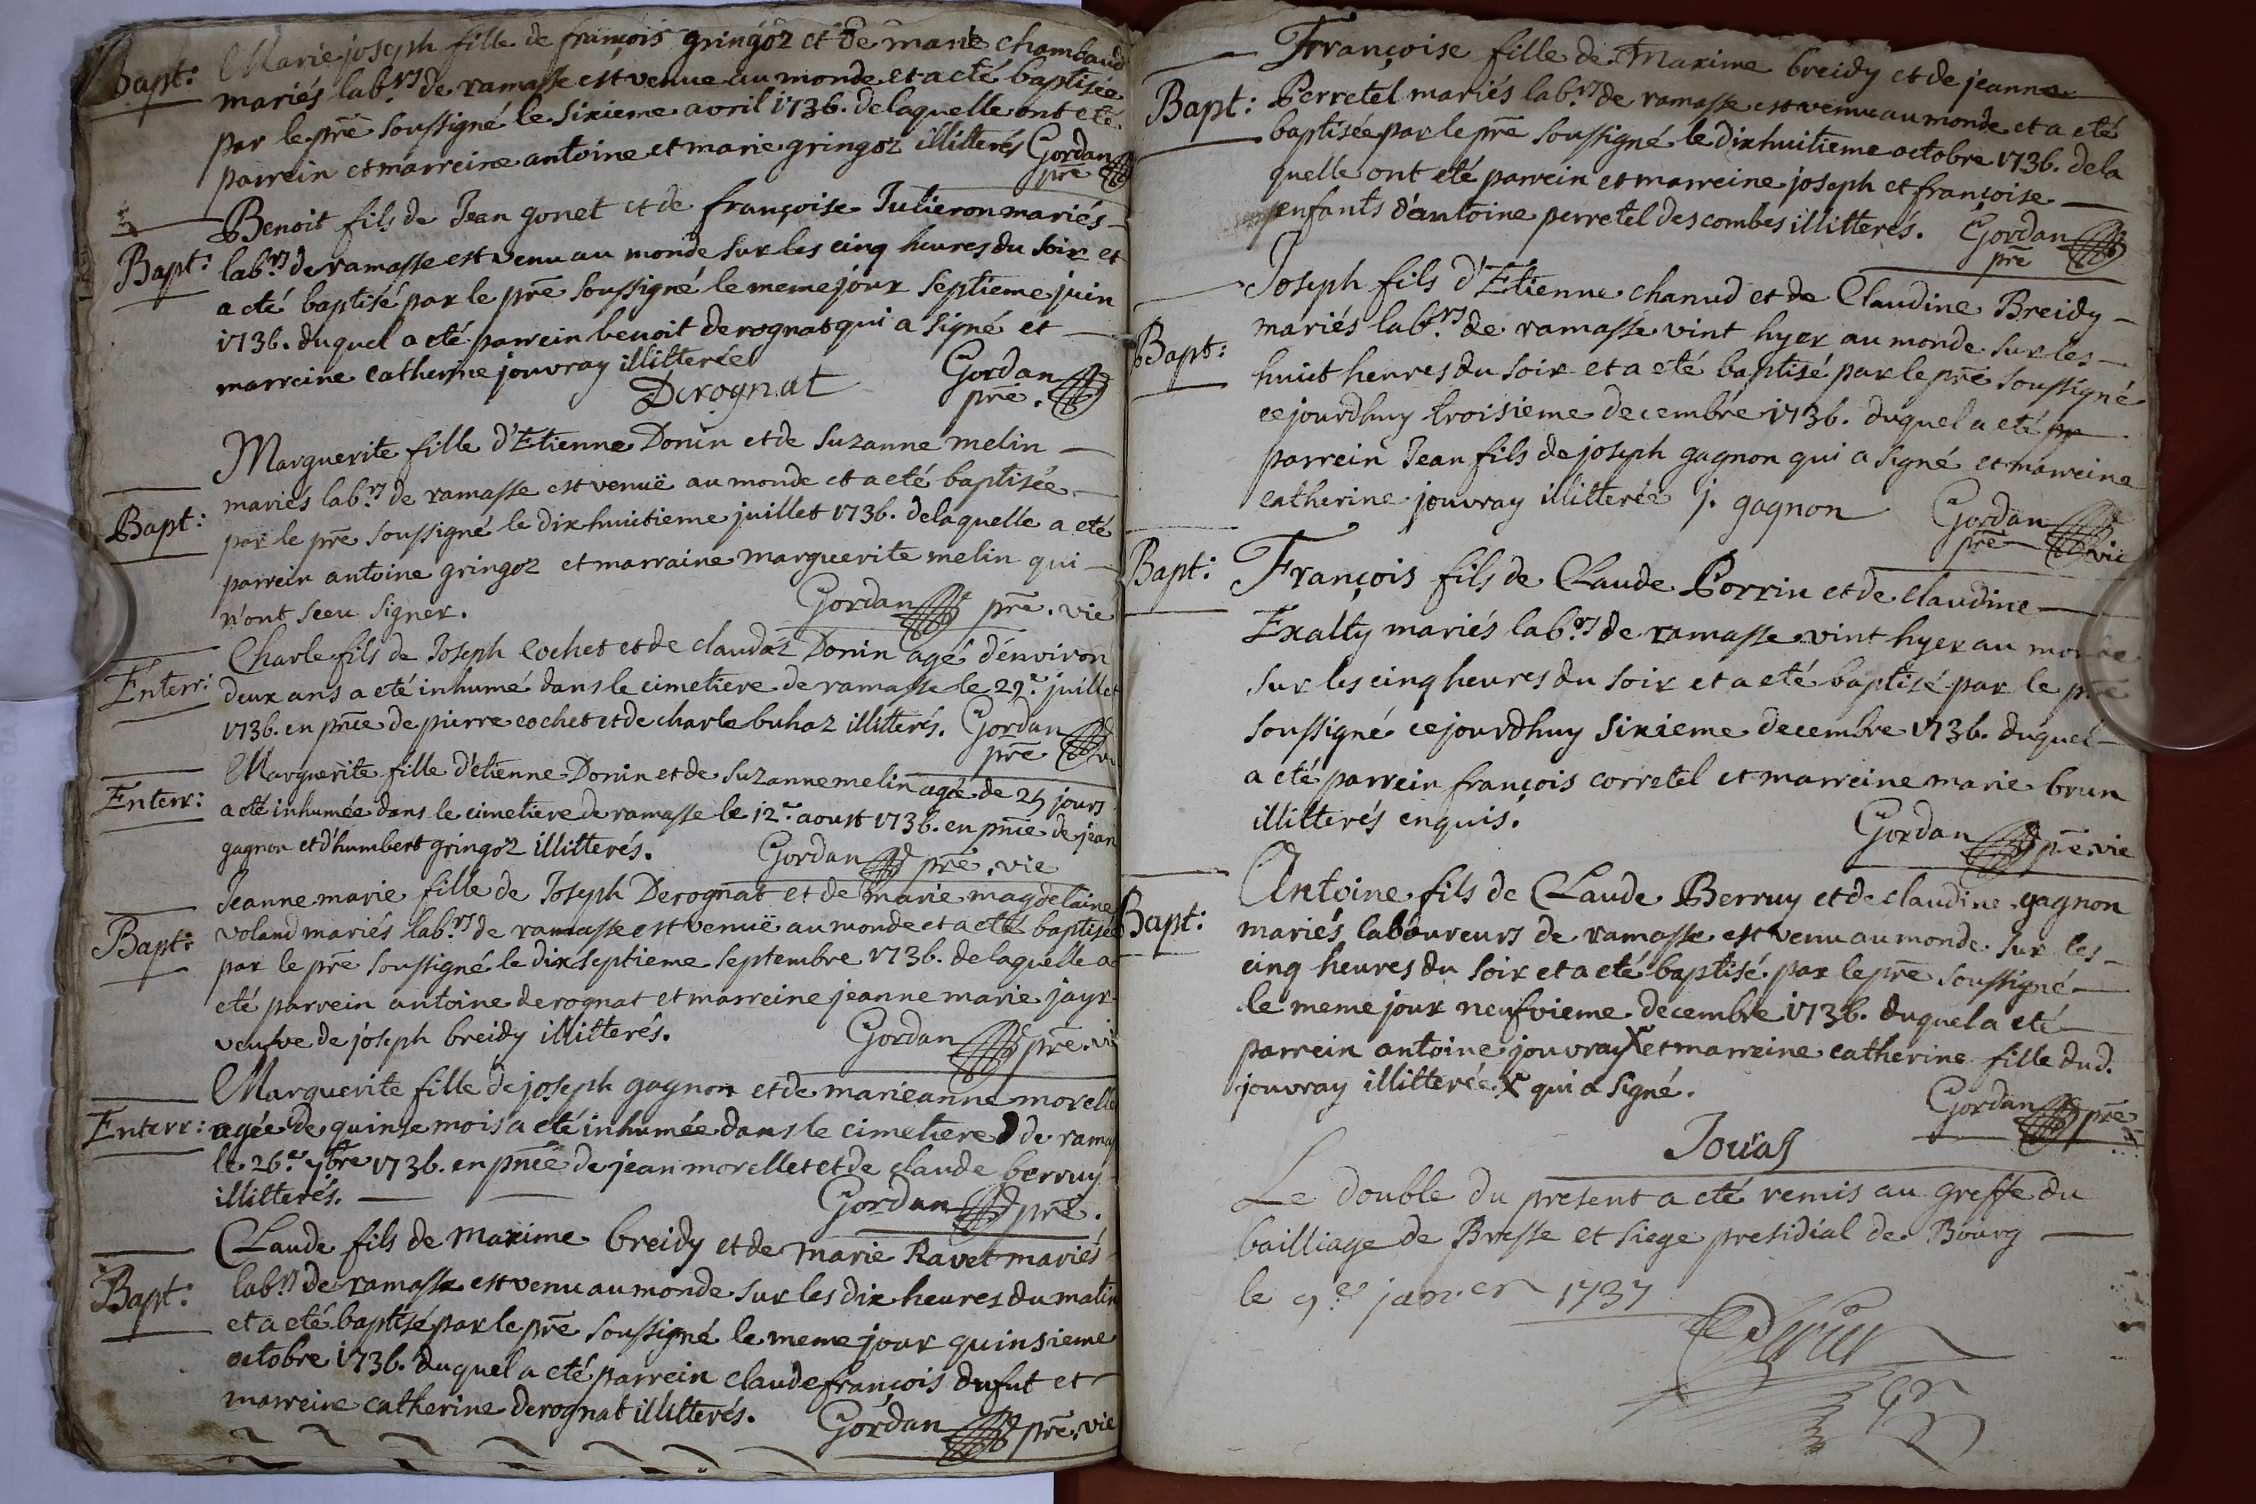 Bapt: Marie joseph fille de françois gringoz et de marie chambaud
mariés lab.rs de ramasse est venue au monde et a eté baptisée
par le prē soussigné le sixieme avril 1736. de laquelle ont eté
parrein et marreine antoine et marie gringoz illitterés Gordan
prē
Benoit fils de Jean gonet et de françoise Jutieron mariés
Bapt: lab.rs de ramasse est venu au monde sur les cinq heures du soir et
a eté baptisé par le prē soussigné le meme jour septieme juin
1736. duquel a eté parrein benoit derognat qui a signé et
marreine catherine jouvray illitterée
Derognat Gordan
prē.
Marguerite fille d'Etienne Donin et de Suzanne melin
mariés lab.rs de ramasse est venuë au monde et a eté baptisée
Bapt: par le prē soussigné le dixhuitieme juillet 1736. de laquelle a eté
parrein antoine gringoz et marraine marguerite melin qui
n'ont sceu signer. Gordan prē. vic
Charle fils de Joseph cochet et de claudaz Donin agé d'environ
Enterr: deux ans a eté inhumé dans le cimetiere de ramasse le 29.e juillet
1736. en pnce de pierre cochet et de charle buhaz illitterés. Gordan
prē
Marguerite fille d'etienne Donin et de Suzanne melin agée de 25 jours
Enterr: a eté inhumée dans le cimetiere de ramasse le 12.e aoust 1736. en pnce de jean
gagnon et d'humbert gringoz illitterés. Gordan prē. vic
Jeanne marie fille de Joseph Derognat et de marie magdelaine
Voland mariés lab.rs de ramasse est venuë au monde et a eté baptisée
Bapt: par le prē soussigné le dixseptieme septembre 1736. de laquelle a
eté parrein antoine derognat et marreine jeanne marie jayr
veufve de joseph breidy illitterés. Gordan prē. vi
Marguerite fille de joseph gagnon et de marieanne morelle
Enterr: agée de quinze mois a eté inhumée dans le cimetiere de ramas
le 26.e 7bre 1736. en pnce de jean morellet et de claude berruy
illitterés. Gordan prē.
Claude fils de maxime breidy et de marie Ravet mariés
Bapt: lab.rs de ramasse est venu au monde sur les dix heures du matin
et a eté baptisé par le prē soussigné le meme jour quinsieme
octobre 1736. duquel a eté parrein claude françois dufut et
marreine catherine derognat illitterés. Gordan prē. vic
Françoise fille de maxime breidy et de jeanne
Bapt: Perretel mariés lab.rs de ramasse est venu au monde et a eté
baptisée par le prē soussigné le dixhuitieme octobre 1736. de la
quelle ont eté parrein et marreine joseph et françoise
enfants d'antoine perretel des combes illitterés. Gordan
prē
Joseph fils d'Etienne chanud et de Claudine Breidy
Bapt: mariés lab.rs de ramasse vint hyer au monde sur les
huict heures du soir et a eté baptisé par le prē soussigné
cejourdhuy troisieme decembre 1736. duquel a eté
parrein Jean fils de joseph gagnon qui a signé et marreine
catherine jouvray illitterée j. gagnon Gordan
prē vic
Bapt: François fils de Claude Porrin et de claudine
Exalty mariés lab.rs de ramasse vint hyer au monde
sur les cinq heures du soir et a eté baptisé par le prē
soussigné cejourdhuy sixieme decembre 1736. duquel
a eté parrein françois corretel et marreine marie brun
illitterés enquis. Gordan prē. vic
Antoine fils de Claude Berruy et de claudine gagnon
Bapt: mariés laboureurs de ramasse est venu au monde sur les
cinq heures du soir et a eté baptisé par le prē soussigné
le meme jour neufvieme decembre 1736. duquel a eté
parrein antoine jouvray X et marreine catherine fille dud.
jouvray illitterée. X qui a signé. Gordan prē
Le double du present a eté remis au greffe du
bailliage de Bresse et siege presidial de Bourg
le 9.e janvier 1737